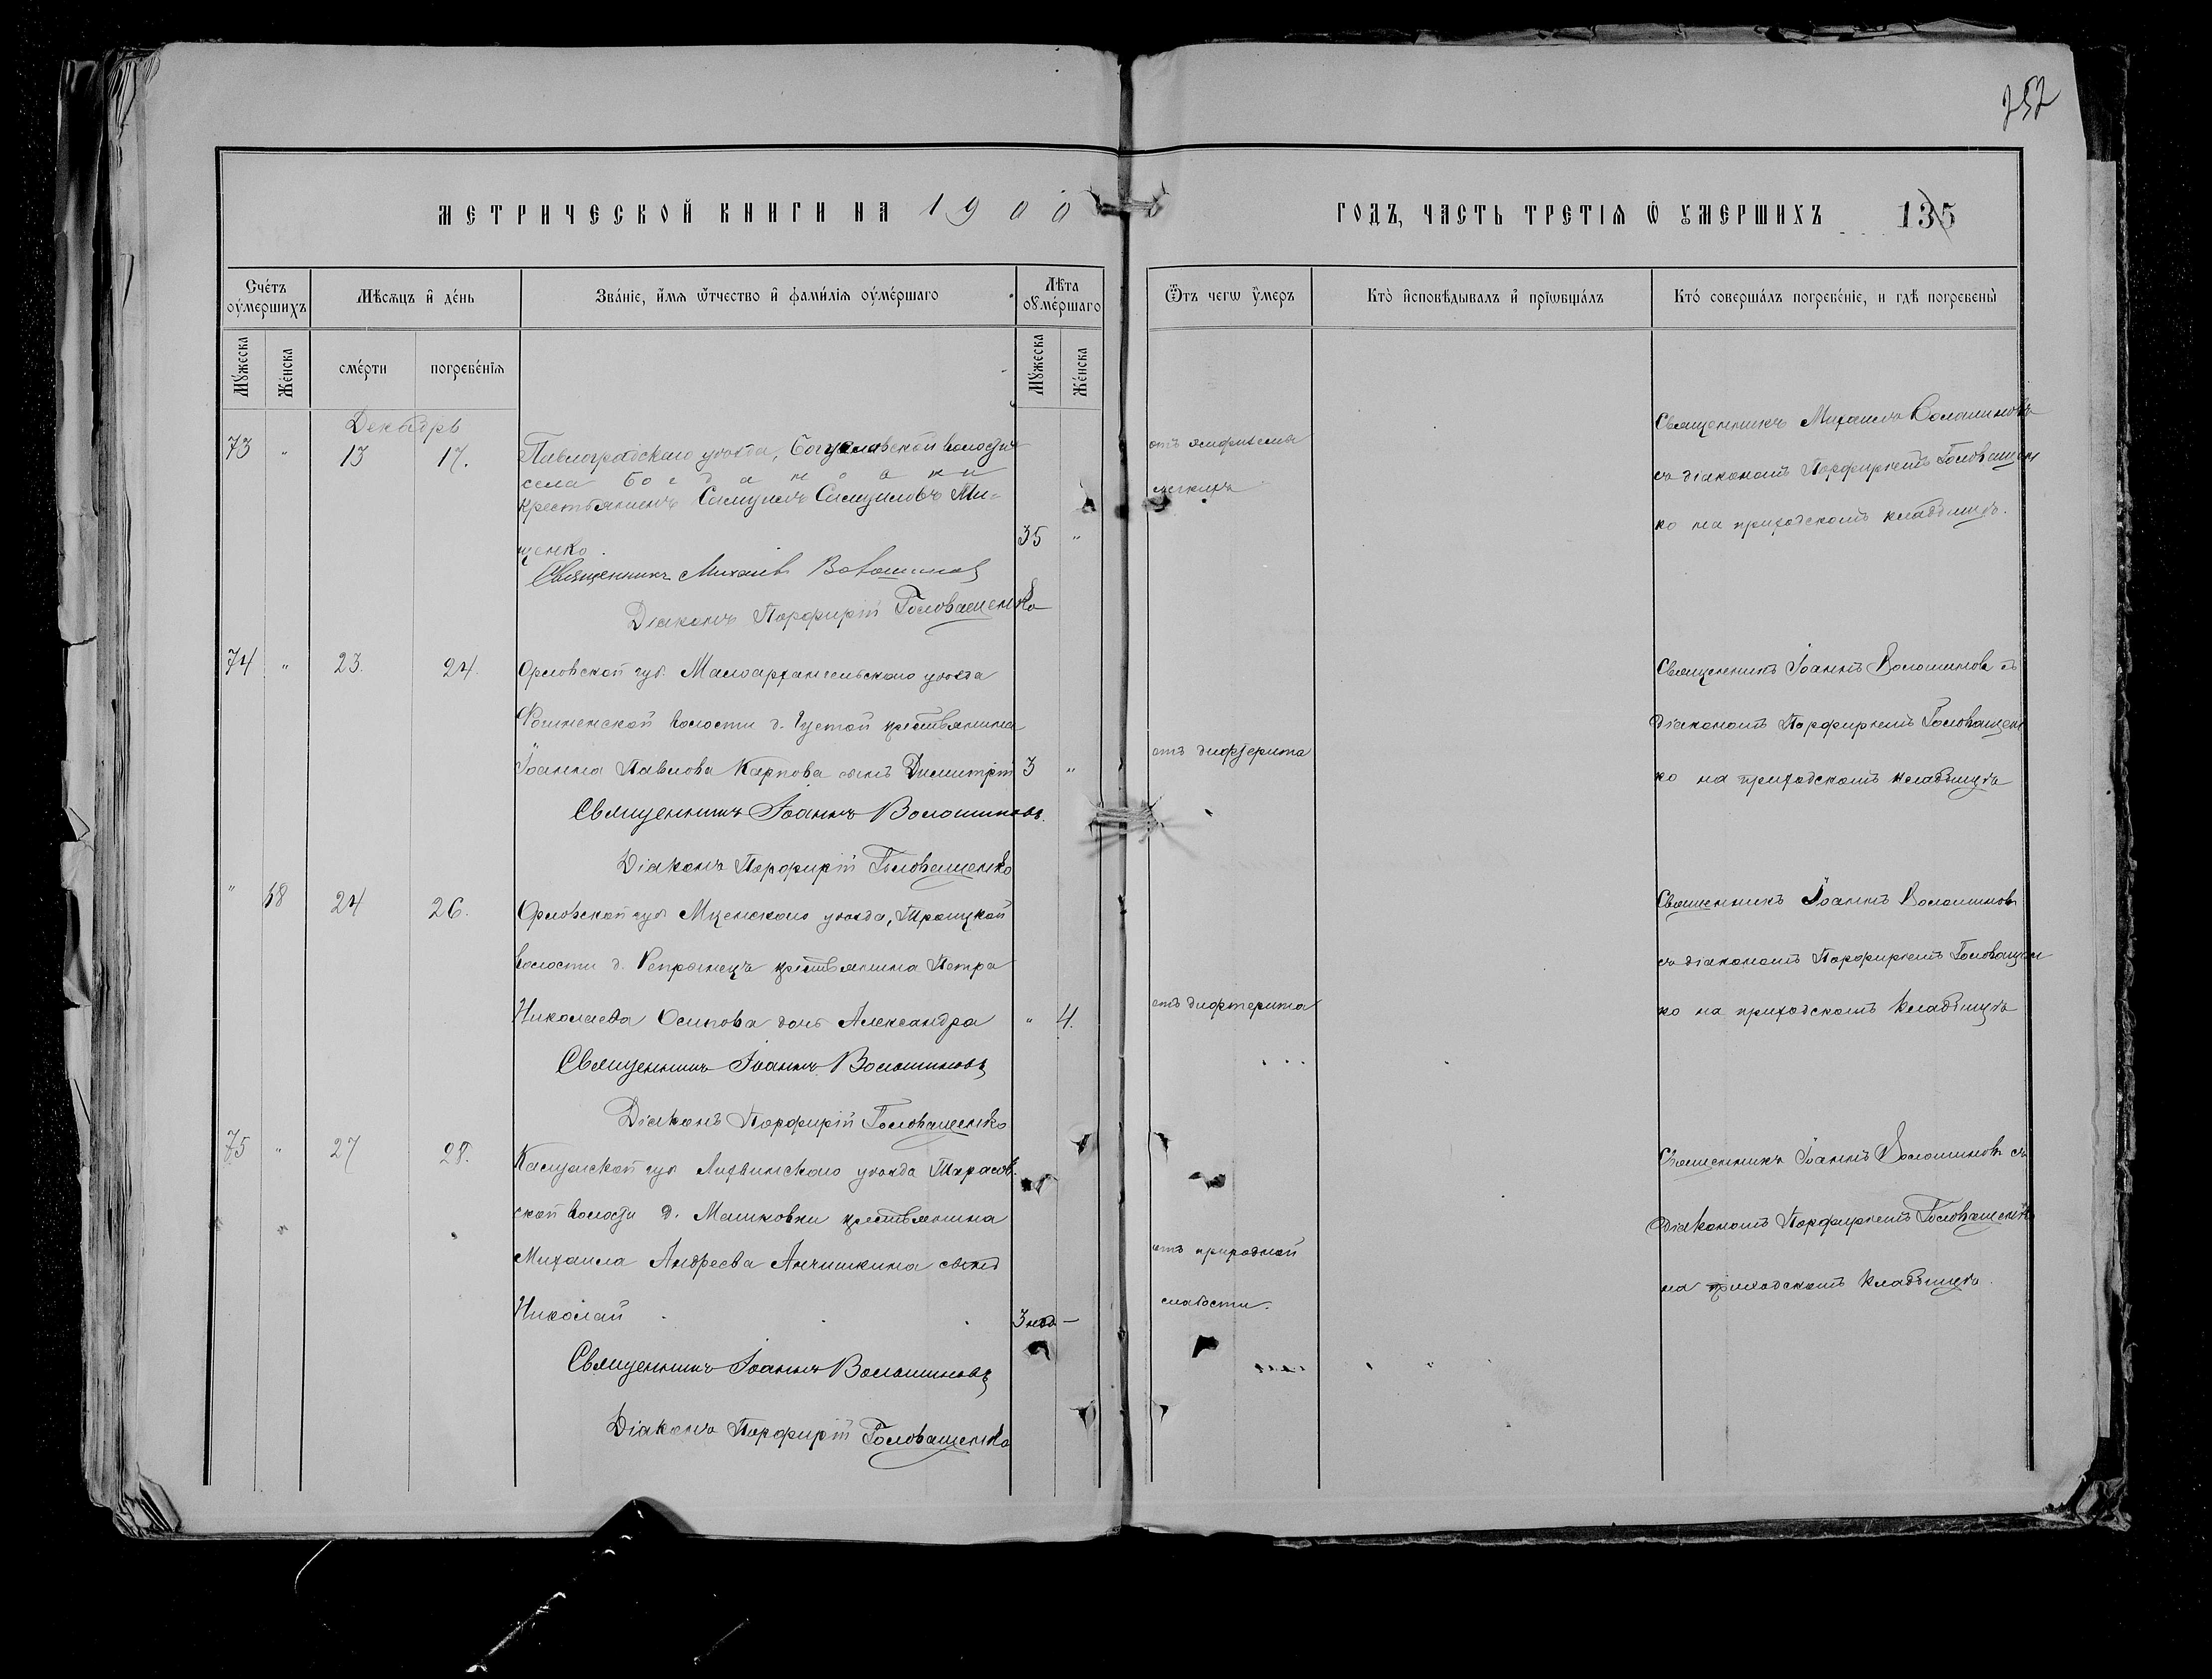 252
МЕТРИЧЕСКОЙ КНИГИ НА 1900
ГОДЪ, ЧАСТЬ ТРЕТІѦ Ѿ УМЕРШИХЪ 135
Счетъ оумершихъ
Мѣсѧцъ и день
Званіе, имѧ ѿтчество и фамиліѧ оумершаго
Лѣта оумершаго
Ѿтъ чегѡ умеръ
Кто исповѣдывалъ и пріѡбщалъ
Кто совершалъ погребеніе, и гдѣ погребены
Мужеска
Женска
смерти
погребеніѧ
Мужеска
Женска
Декабрь
73 " 13 17. Павлоградскаго уѣзда, Богуславской волости
села Богдановки
крестьянинъ Самуилъ Самуиловъ Ти-
щенко. 35 "
Священникъ Михаилъ Волошиновъ
Діаконъ Порфирій Головашенко
отъ эмфизема
легкихъ
Священникъ Михаилъ Волошиновъ
съ діакономъ Порфиріемъ Головащен
ко на приходскомъ кладбищѣ.
74 " 23. 24. Орловской губ. Малоархангельскаго уѣзда
волости д. Густой крестьянина
Іоанна Павлова Карпова сынъ Димитрій 3 "
Священникъ Іоаннъ Волошиновъ.
Діаконъ Порфирій Головашенко
отъ дифтерита
Священникъ Іоаннъ Волошиновъ съ
діакономъ Порфиріемъ Головащен
ко на приходскомъ кладбищѣ
" 68 24 26. Орловской губ Мценскаго уѣзда, Троицкой
волости д. крестьянина Петра
Николаева Осипова дочь Александра " 4.
Священникъ Іоаннъ Волошиновъ
Діаконъ Порфирій Головашенко
отъ дифтерита
Священникъ Іоаннъ Волошиновъ
съ діакономъ Порфиріемъ Головащен
ко на приходскомъ кладбищѣ
75 " 27 28. Калужской губ Лихвинскаго уѣзда Тарасов
ской волости д. Машковки крестьянина
Михаила Андреева Анчишкина сынъ
Николай 3 нед —
Священникъ Іоаннъ Волошиновъ
Діаконъ Порфирій Головашенко
отъ природной
слабости.
Священникъ Іоаннъ Волошиновъ съ
Діакономъ Порфиріемъ Головашенко
на приходскомъ кладбищѣ.